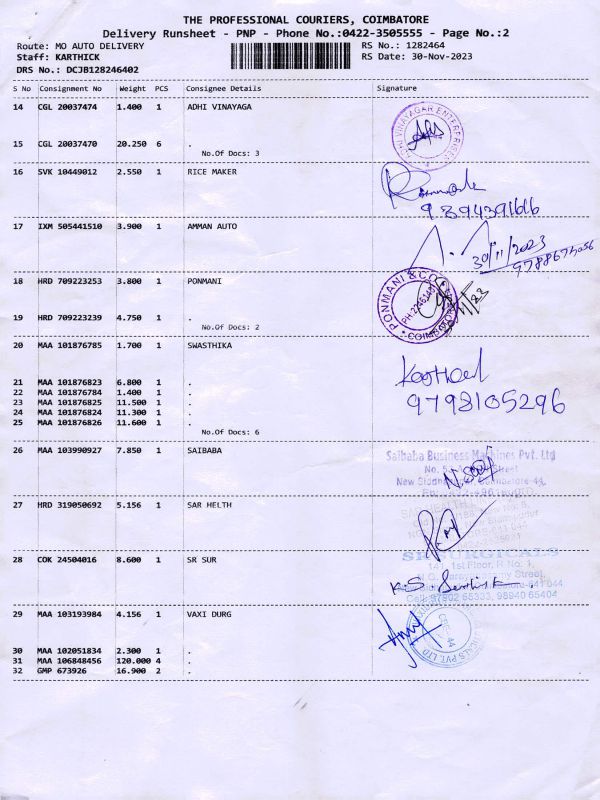 THE PROFESSIONAL COURIERS, COIMBATORE
Delivery Runsheet - PNP - Phone No.:0422-3505555 - Page No.:2
Route: MO AUTO DELIVERY
RS No.: 1282464
Staff: KARTHICK
RS Date: 30-Nov-2023
DRS No.: DCJB128246402
S No Consignment No Weight PCS Consignee Details Signature
14 CGL 20037474 1.400 1 ADHI VINAYAGA
15 CGL 20037470 20.250 6 .
No.Of Docs: 3
16 SVK 10449012 2.550 1 RICE MAKER
9894391616
17 IXM 505441510 3.900 1 AMMAN AUTO
30/11/2023
18 HRD 709223253 3.800 1 PONMANI
PONMANI & CO
19 HRD 709223239 4.750 1 .
No.Of Docs: 2
20 MAA 101876785 1.700 1 SWASTHIKA
21 MAA 101876823 6.800 1 .
22 MAA 101876784 1.400 1 .
23 MAA 101876825 11.500 1 .
24 MAA 101876824 11.300 1 .
25 MAA 101876826 11.600 1 .
No.Of Docs: 6
9798105296
26 MAA 103990927 7.850 1 SAIBABA
Saibaba Business Machines Pvt. Ltd
27 HRD 319050692 5.156 1 SAR HELTH
28 COK 24504016 8.600 1 SR SUR
SR SURGICALS
141, 1st Floor, R No. 1,
Cell: 97902 65333, 98940 65404
29 MAA 103193984 4.156 1 VAXI DURG
30 MAA 102051834 2.300 1 .
31 MAA 106848456 120.000 4 .
32 GMP 673926 16.900 2 .